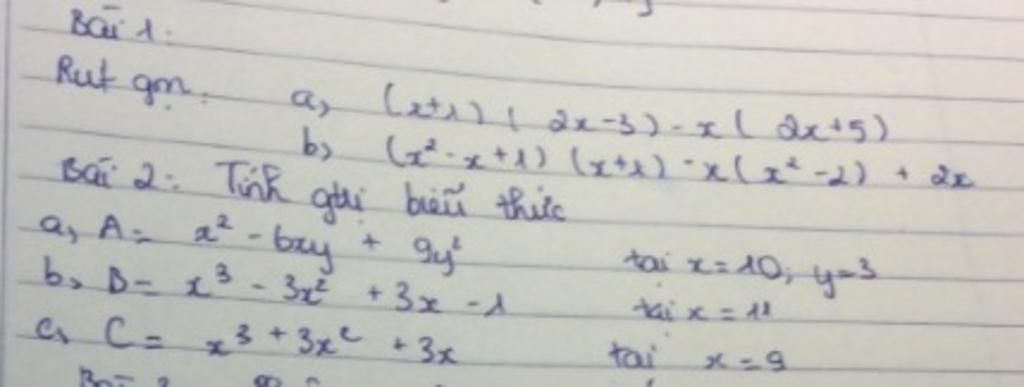 Bài 1:
Rut gọn: a, (x+1)( 2x-3) - x( 2x+5)
b, (x² - x + 1) (x+1) - x(x² -2) + 2x
Bài 2: Tính gtri biểu thức
a, A = x² - 6xy + 9y² tại x=10, y=3
b, B = x³ - 3x² + 3x - 1 tại x = 11
c, C = x³ + 3x² + 3x tại x = 9